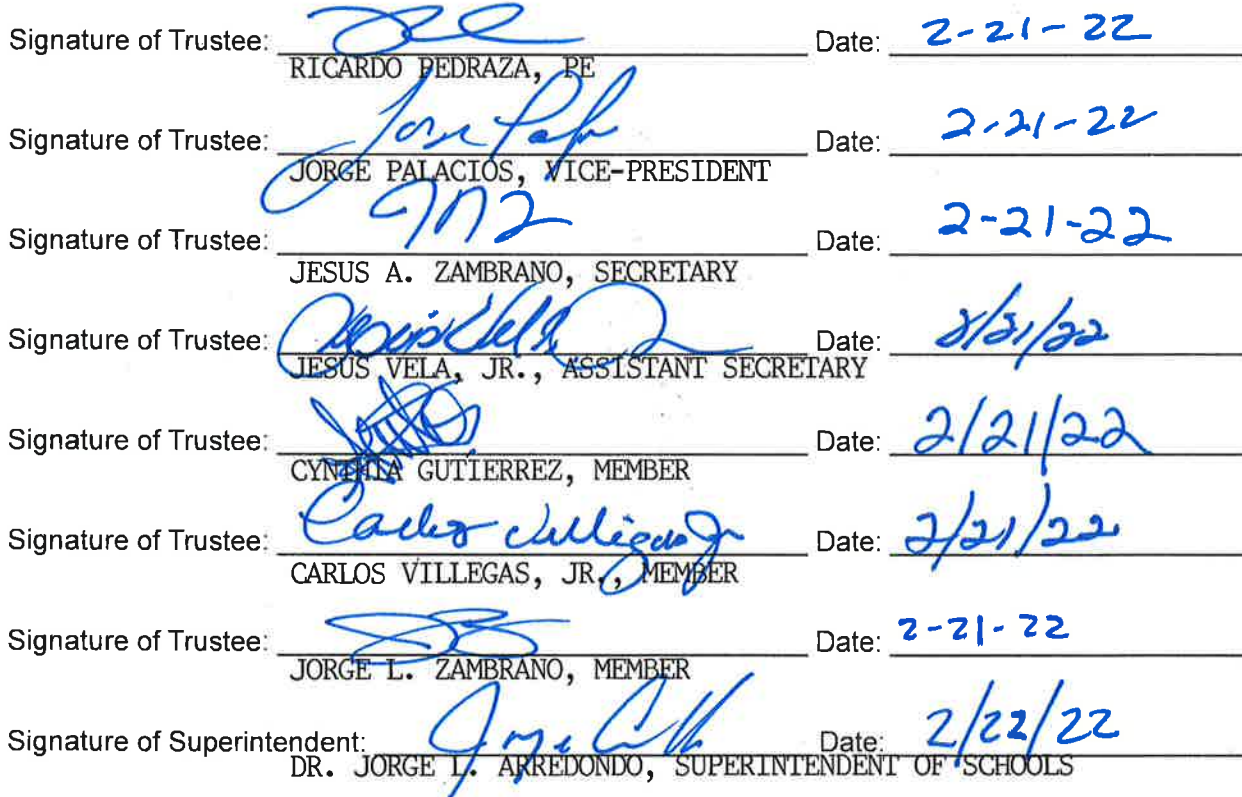 Signature of Trustee: Date: 2-21-22
RICARDO PEDRAZA, PE
Signature of Trustee: Date: 2-21-22
JORGE PALACIOS, VICE-PRESIDENT
Signature of Trustee: Date: 2-21-22
JESUS A. ZAMBRANO, SECRETARY
Signature of Trustee: Date: 2/21/22
JESUS VELA, JR., ASSISTANT SECRETARY
Signature of Trustee: Date: 2/21/22
CYNTHIA GUTIERREZ, MEMBER
Signature of Trustee: Carlos Villegas Jr Date: 2/21/22
CARLOS VILLEGAS, JR., MEMBER
Signature of Trustee: Date: 2-21-22
JORGE L. ZAMBRANO, MEMBER
Signature of Superintendent: Date: 2/22/22
DR. JORGE L. ARREDONDO, SUPERINTENDENT OF SCHOOLS